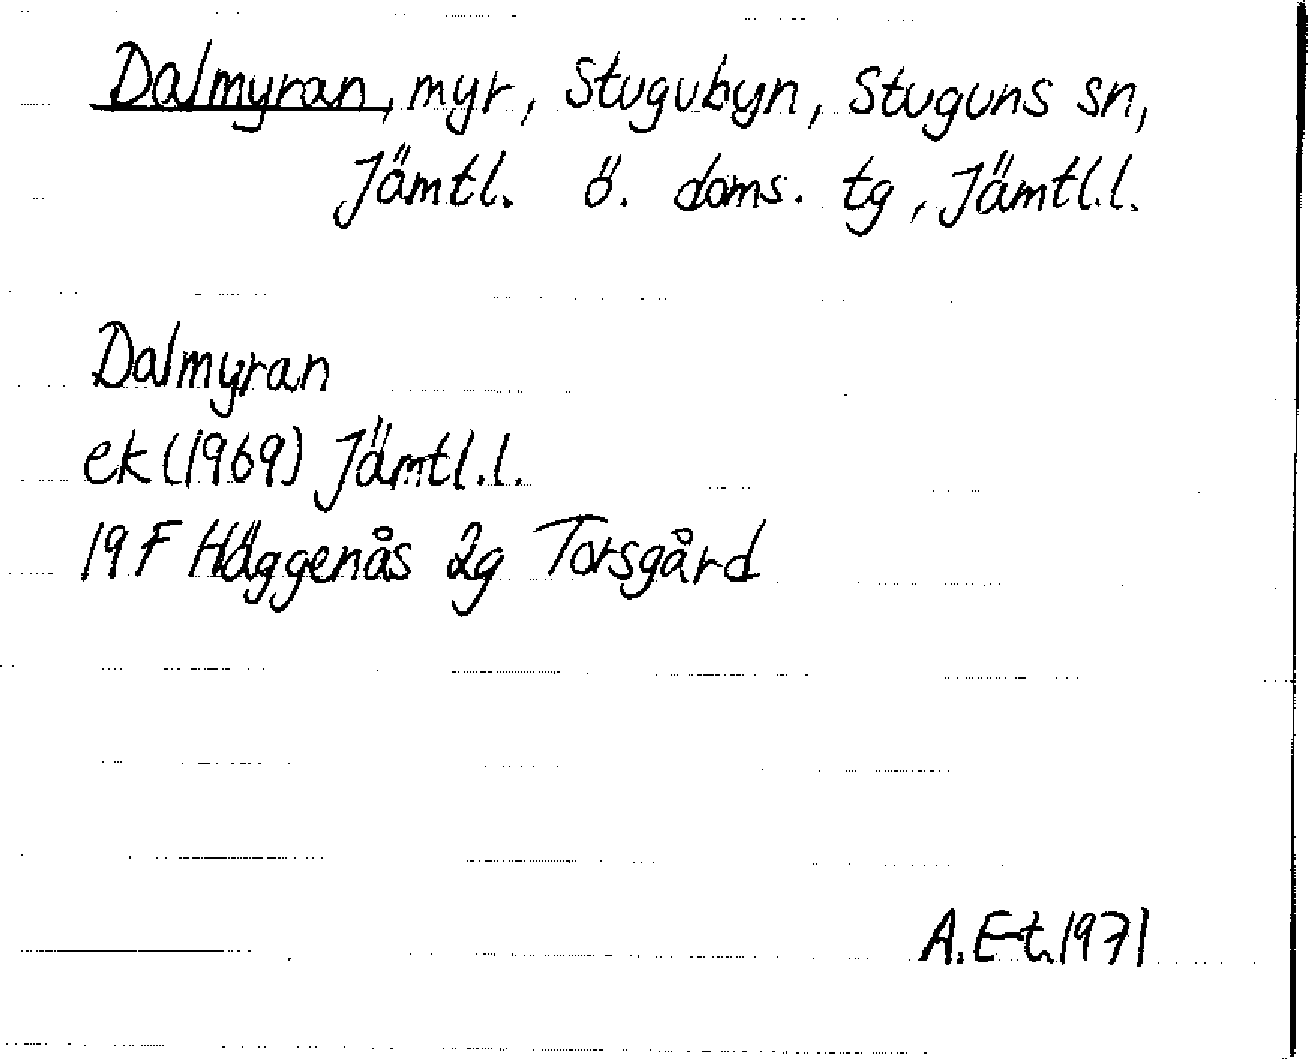 Dalmyran, myr, Stugubyn, Stuguns sn,
Jämtl. ö. doms. tg, Jämtl.l.
Dalmyran
ek (1969) Jämtl.l.
19 F Häggenås 2g Torsgård
A. E-t. 1971